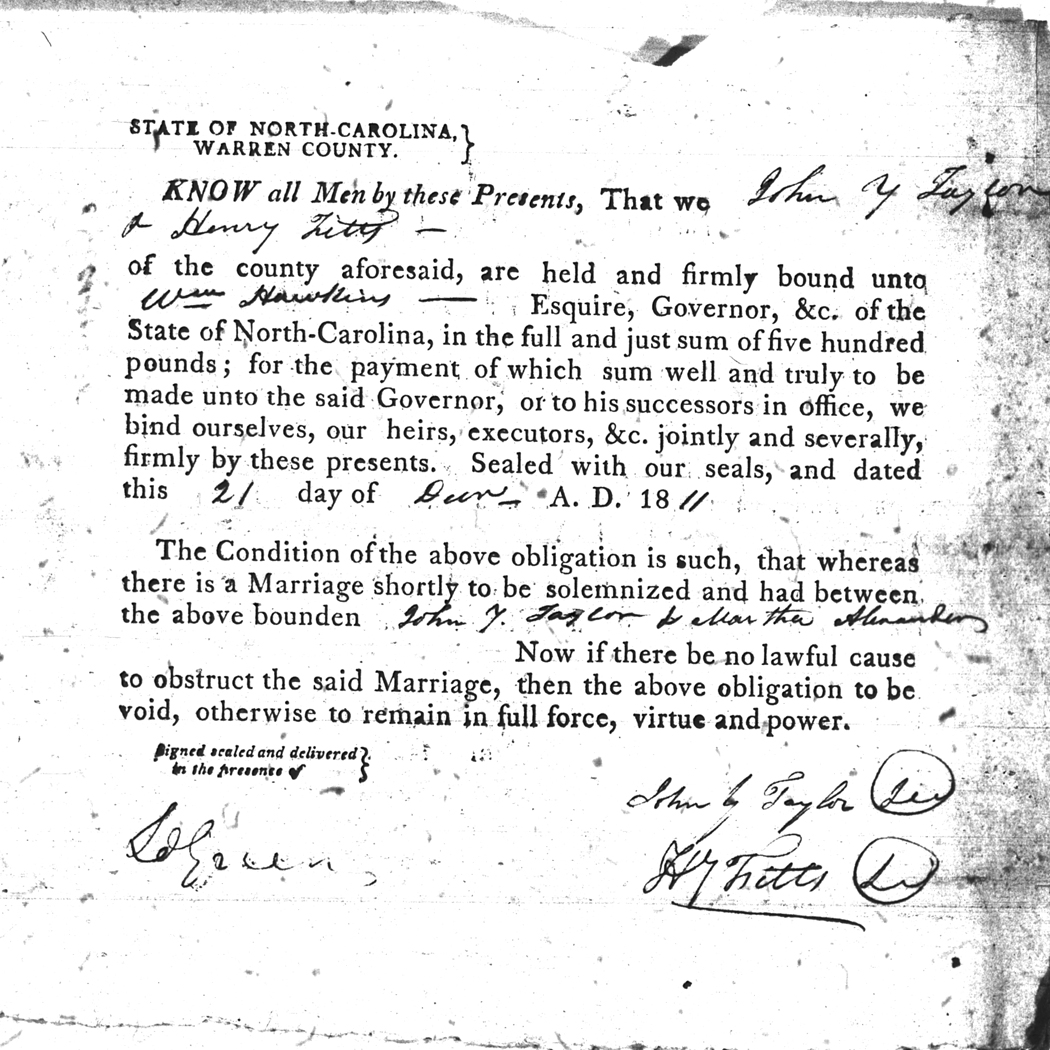 STATE OF NORTH-CAROLINA, }
WARREN COUNTY.
KNOW all Men by these Presents, That we John Y Taylor
& Henry Fitts —
of the county aforesaid, are held and firmly bound unto
Wm Hawkins — Esquire, Governor, &c. of the
State of North-Carolina, in the full and just sum of five hundred
pounds; for the payment of which sum well and truly to be
made unto the said Governor, or to his successors in office, we
bind ourselves, our heirs, executors, &c. jointly and severally,
firmly by these presents. Sealed with our seals, and dated
this 21 day of A. D. 1811
The Condition of the above obligation is such, that whereas
there is a Marriage shortly to be solemnized and had between
the above bounden John Y. Taylor & Martha
Now if there be no lawful cause
to obstruct the said Marriage, then the above obligation to be
void, otherwise to remain in full force, virtue and power.
Signed sealed and delivered }
in the presence of
John Y Taylor
Green
Hy Fitts